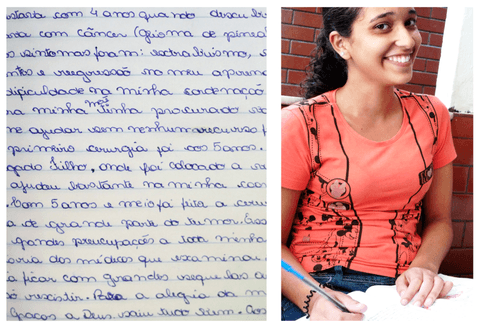 estaria com 4 anos quando descu
esta com câncer (Glioma de pineal
os sintomas foram: estrabismo,
e regressão no meu aprend
dificuldade na minha cordenação
ra minha mãe tinha procurado
me ajudar sem nenhum recurso
primeiro cirurgia foi aos 5 anos.
Filho, onde foi colocado a
ajudou bastante na minha coor
Com 5 anos e meio foi feita a
a de grande parte do tumor. Esso
grandes preocupações a toda minha
oria dos médicos que examinar
a ficar com grandes sequelas o
resistir. Para a alegria da m
Graças a Deus saiu tudo bem. Aos